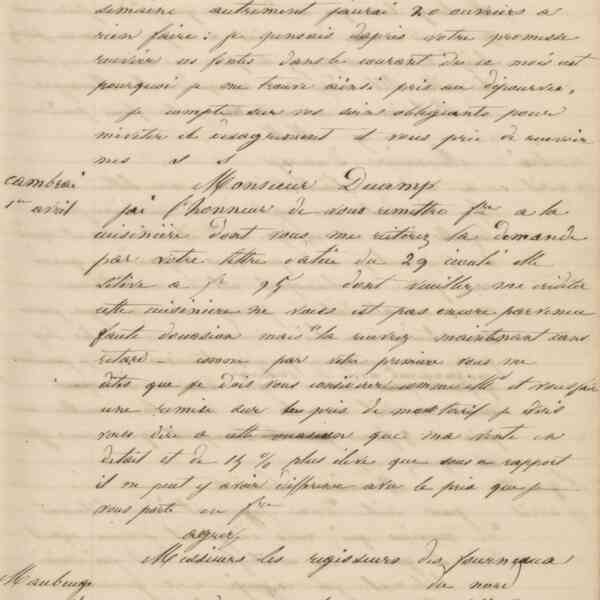 semaine autrement jaurai 20 ouvriers a
rien faire: je pensais daprès votre promesse
recevoir ces fontes dans le courant de ce mois cest
pourquoi je me trouve ainsi pris au dépourvu.
je compte sur vos soins obligeants pour
méviter ce désagrément et vous prie de recevoir
mes s s
cambrai Monsieur Ducamp
1er avril jai l'honneur de vous remettre fre a la
cuisinière dont vous me réiterez la demande
par votre lettre datée du 29 écoulé elle
sélève a fr 95 dont veuillez me créditer
cette cuisinière ne vous est pas encore parvenue
faute doccasion mais la recevrez maintenant sans
retard - comme par votre première vous me
dites que je dois vous considérer comme Md et vous faire
une remise sur les prix de mon tarif je dois
vous dire a cette occasion que ma vente en
détail est de 15 % plus élevé que sous ce rapport
il ne peut y avoir différence avec le prix que je
vous porte en fre
agréez
Messieurs les régisseurs des fourneaux
Maubeuge du nord